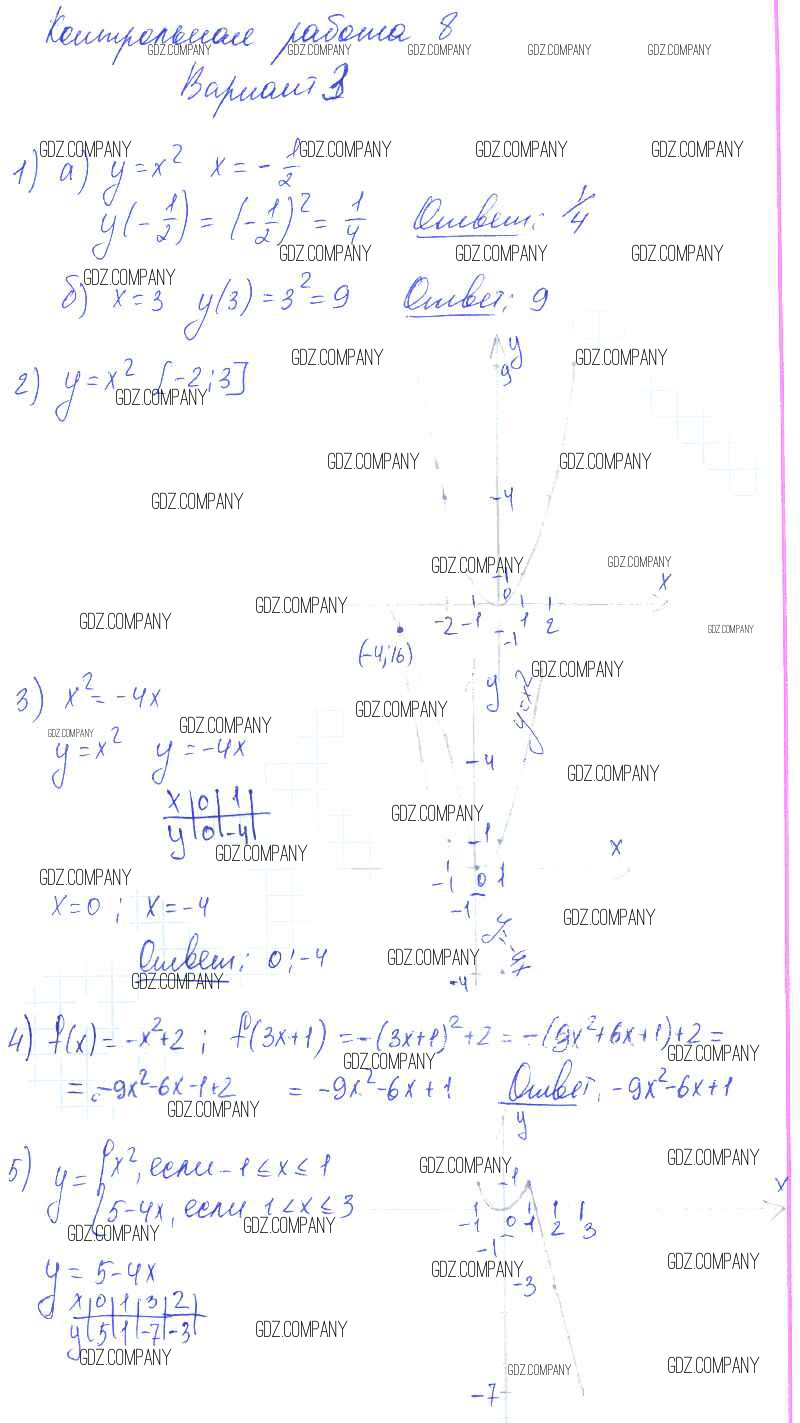 Контрольная работа 8
GDZ.COMPANY GDZ.COMPANY GDZ.COMPANY GDZ.COMPANY GDZ.COMPANY
Вариант 3
GDZ.COMPANY GDZ.COMPANY GDZ.COMPANY GDZ.COMPANY
1) а) y = x² x = -1/2
y(-1/2) = (-1/2)² = 1/4 Ответ: 1/4
GDZ.COMPANY GDZ.COMPANY GDZ.COMPANY
GDZ.COMPANY
б) x = 3 y(3) = 3² = 9 Ответ: 9
y
GDZ.COMPANY GDZ.COMPANY
9
2) y = x² [-2; 3]
GDZ.COMPANY
GDZ.COMPANY GDZ.COMPANY
GDZ.COMPANY
-4
GDZ.COMPANY GDZ.COMPANY
-1
0 x
GDZ.COMPANY
GDZ.COMPANY
-2 -1 1 2
GDZ.COMPANY
-1
(-4; 16)
GDZ.COMPANY
3) x² = -4x
y y=x²
GDZ.COMPANY
GDZ.COMPANY
GDZ.COMPANY
y = x² y = -4x
-4
GDZ.COMPANY
x 0 1
y 0 -4
GDZ.COMPANY
-1 x
GDZ.COMPANY
GDZ.COMPANY
-1 0 1
x = 0; x = -4
-1
GDZ.COMPANY
Ответ: 0; -4
GDZ.COMPANY
GDZ.COMPANY
-4
4) f(x) = -x²+2; f(3x+1) = -(3x+1)²+2 = -(9x²+6x+1)+2 =
GDZ.COMPANY GDZ.COMPANY
= -9x²-6x-1+2 = -9x²-6x+1 Ответ: -9x²-6x+1
GDZ.COMPANY
y
5) y = { x², если -1 ≤ x ≤ 1
GDZ.COMPANY GDZ.COMPANY
1 x
5-4x, если 1 < x ≤ 3
GDZ.COMPANY GDZ.COMPANY
-1 0 1 2 3
-1
y = 5-4x
GDZ.COMPANY GDZ.COMPANY
-3
x 0 1 3 2
y 5 1 -7 -3
GDZ.COMPANY
GDZ.COMPANY GDZ.COMPANY GDZ.COMPANY
-7